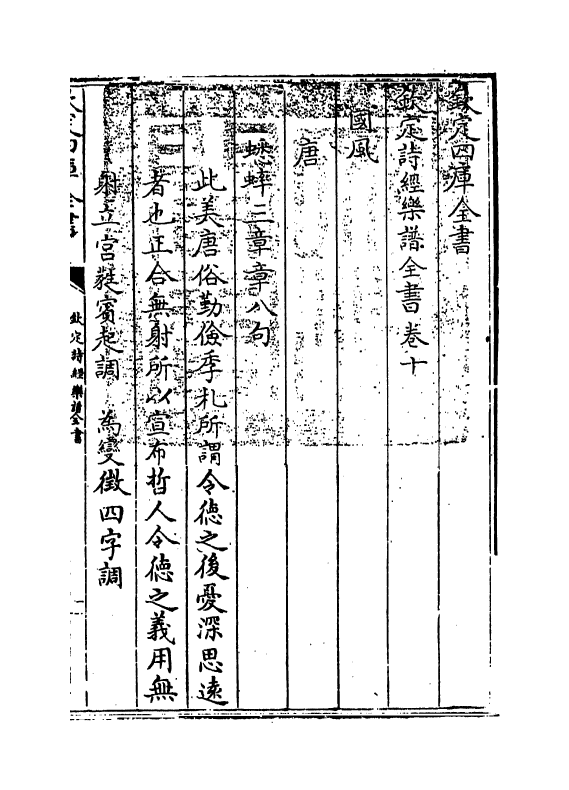 欽定四庫全書
欽定詩經樂譜全書卷十
國風
唐
蟋蟀三章章八句
此美唐俗勤儉季札所謂令德之後憂深思遠
者也正合無射所以宣布哲人令德之義用無
射立宮蕤賓起調　為變徵四字調
欽定四庫全書
欽定詩經樂譜全書